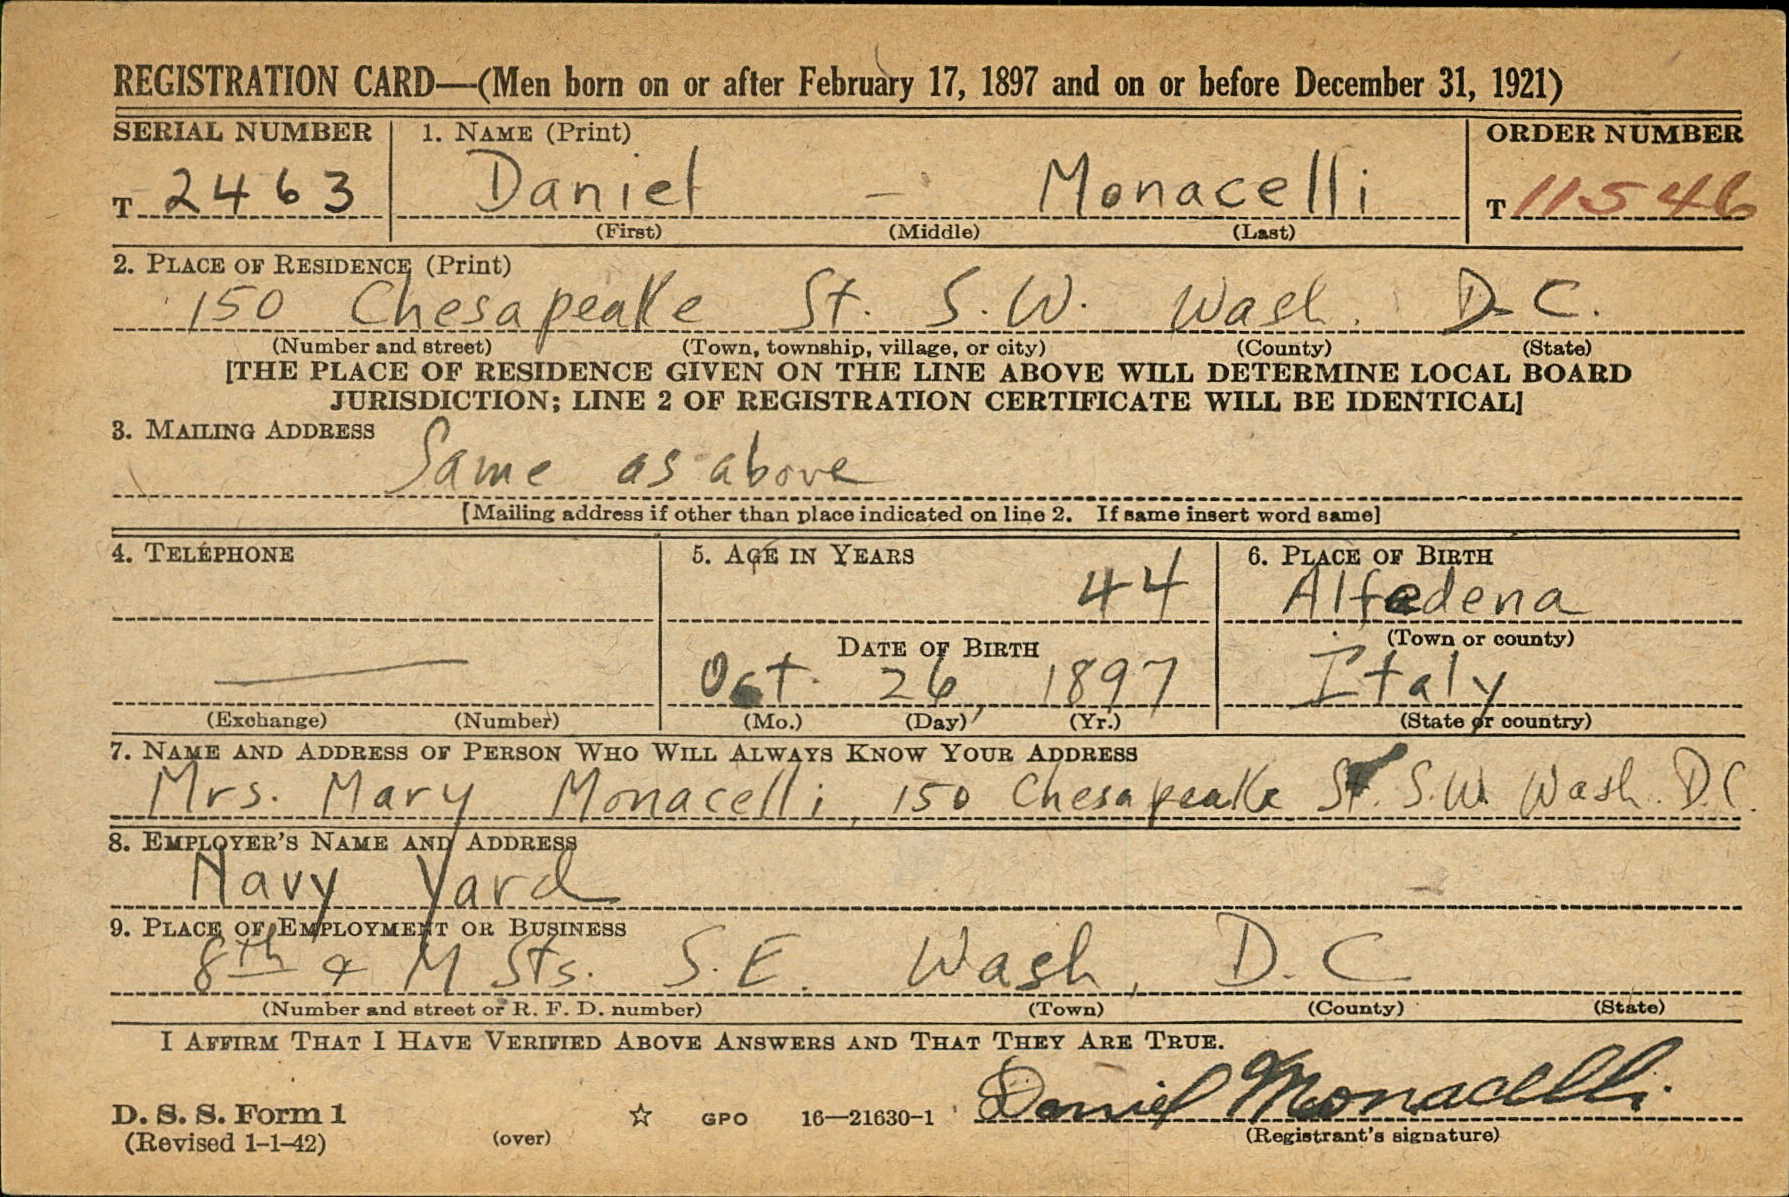 REGISTRATION CARD—(Men born on or after February 17, 1897 and on or before December 31, 1921)
SERIAL NUMBER 1. NAME (Print) ORDER NUMBER
T 2463 Daniel — Monacelli T 11546
(First) (Middle) (Last)
2. PLACE OF RESIDENCE (Print)
150 Chesapeake St. S.W. Wash. D.C.
(Number and street) (Town, township, village, or city) (County) (State)
[THE PLACE OF RESIDENCE GIVEN ON THE LINE ABOVE WILL DETERMINE LOCAL BOARD
JURISDICTION; LINE 2 OF REGISTRATION CERTIFICATE WILL BE IDENTICAL]
3. MAILING ADDRESS
Same as above
[Mailing address if other than place indicated on line 2. If same insert word same]
4. TELEPHONE 5. AGE IN YEARS 6. PLACE OF BIRTH
44 Alfedena
DATE OF BIRTH (Town or county)
— Oct. 26, 1897 Italy
(Exchange) (Number) (Mo.) (Day) (Yr.) (State or country)
7. NAME AND ADDRESS OF PERSON WHO WILL ALWAYS KNOW YOUR ADDRESS
Mrs. Mary Monacelli, 150 Chesapeake St. S.W. Wash. D.C.
8. EMPLOYER'S NAME AND ADDRESS
Navy Yard
9. PLACE OF EMPLOYMENT OR BUSINESS
8th & M Sts. S.E. Wash, D.C
(Number and street or R. F. D. number) (Town) (County) (State)
I AFFIRM THAT I HAVE VERIFIED ABOVE ANSWERS AND THAT THEY ARE TRUE.
D. S. S. Form 1 ☆ GPO 16—21630-1 Daniel Monacelli
(Revised 1-1-42) (over) (Registrant's signature)